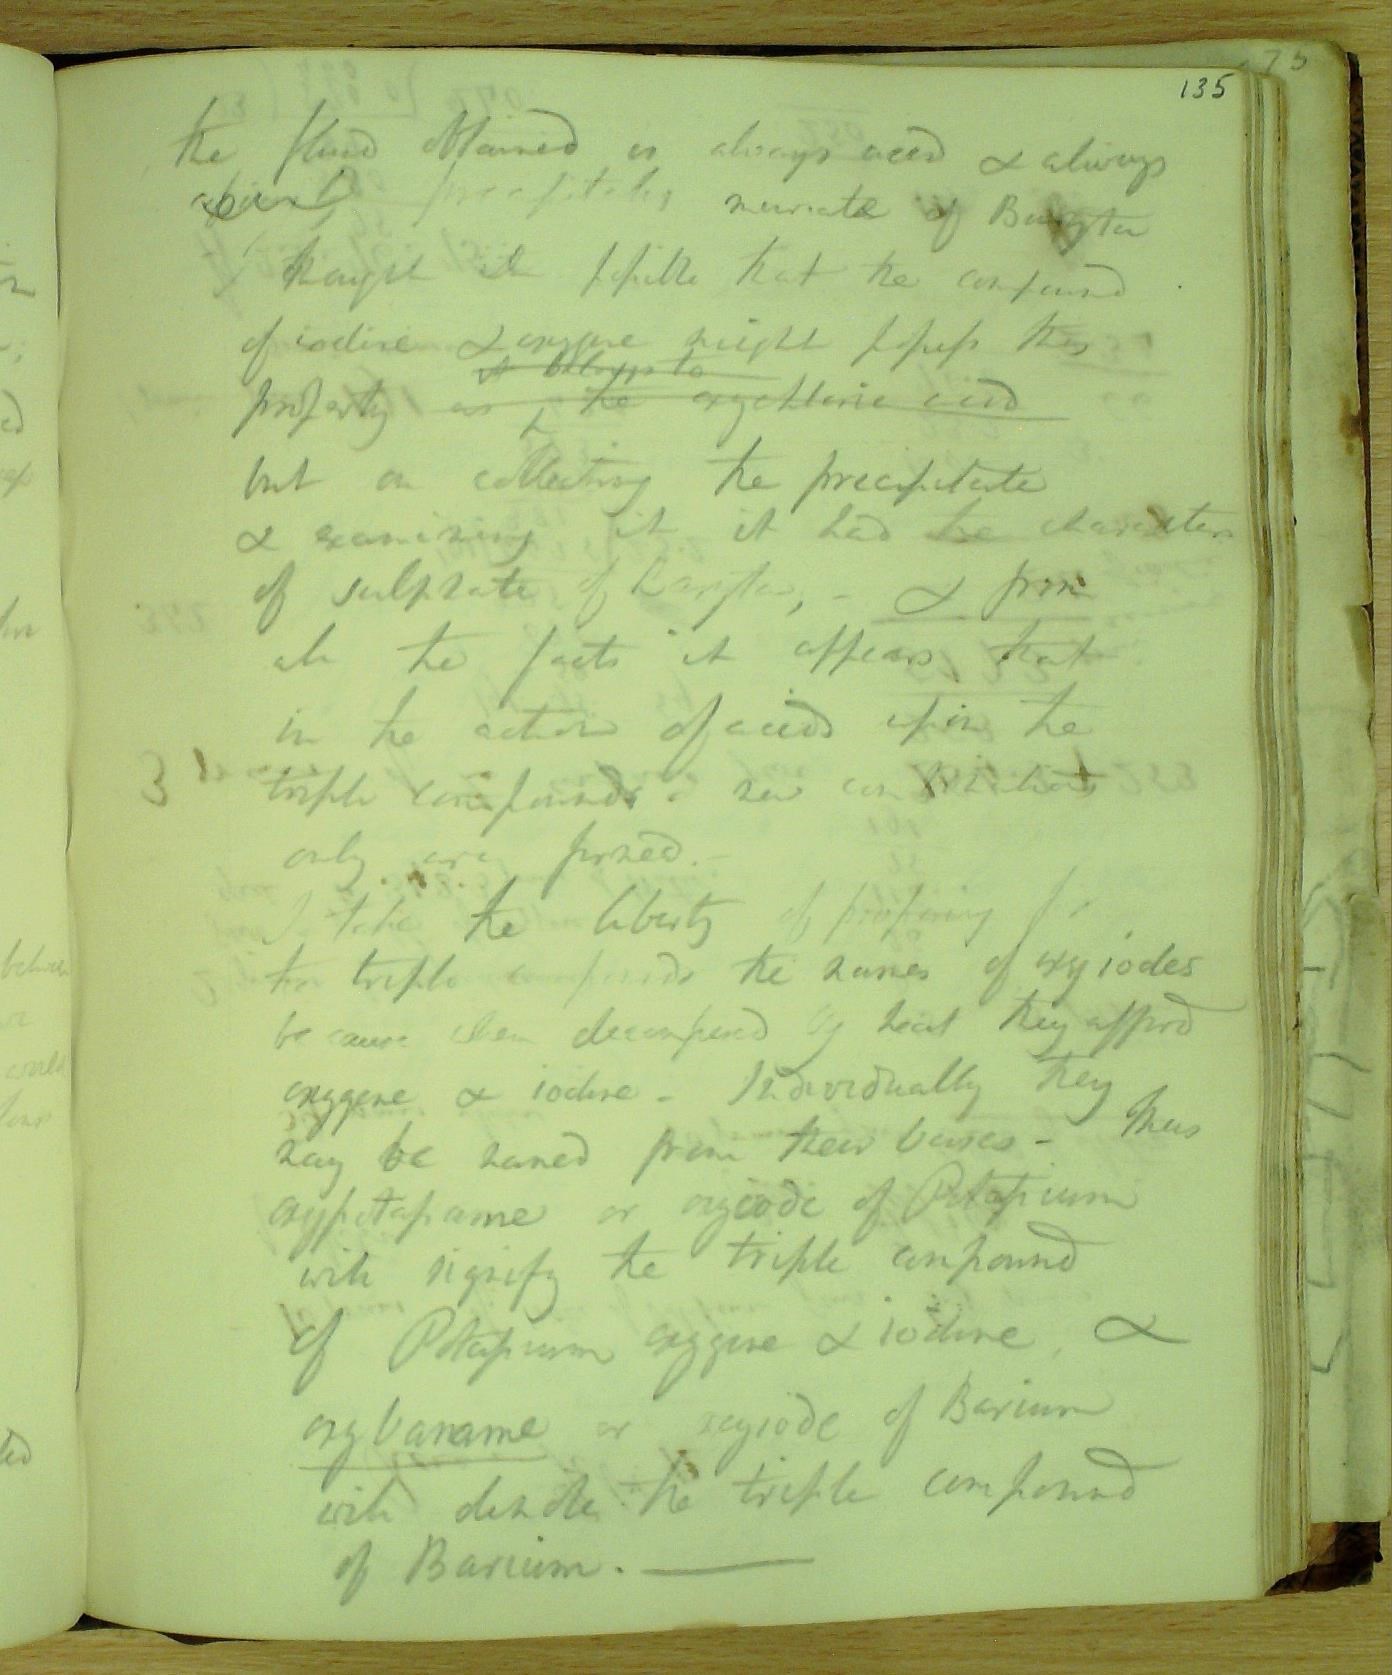 135
the fluid obtained is always acid & always
precipitates muriate of Baryta
I thought it possible that the compound
of iodine & oxygene might possess this
it belongs to
property as the oxychloric acid
but on collecting the precipitate
& examining it it had the characters
of sulphate of baryta, - & from
all the facts it appears that
in the action of acids upon the
triple compounds new combinations
only are formed. -
I take the liberty of proposing for
the triple compounds the names of oxyiodes
because when decomposed by heat they afford
oxygene & iodine - Individually they
may be named from their bases - Thus
oxypotassame or oxyiode of Potassium
will signify the triple compound
of Potassium oxygene & iodine, &
oxybaname or oxyiode of Barium
will denote the triple compound
of Barium. —